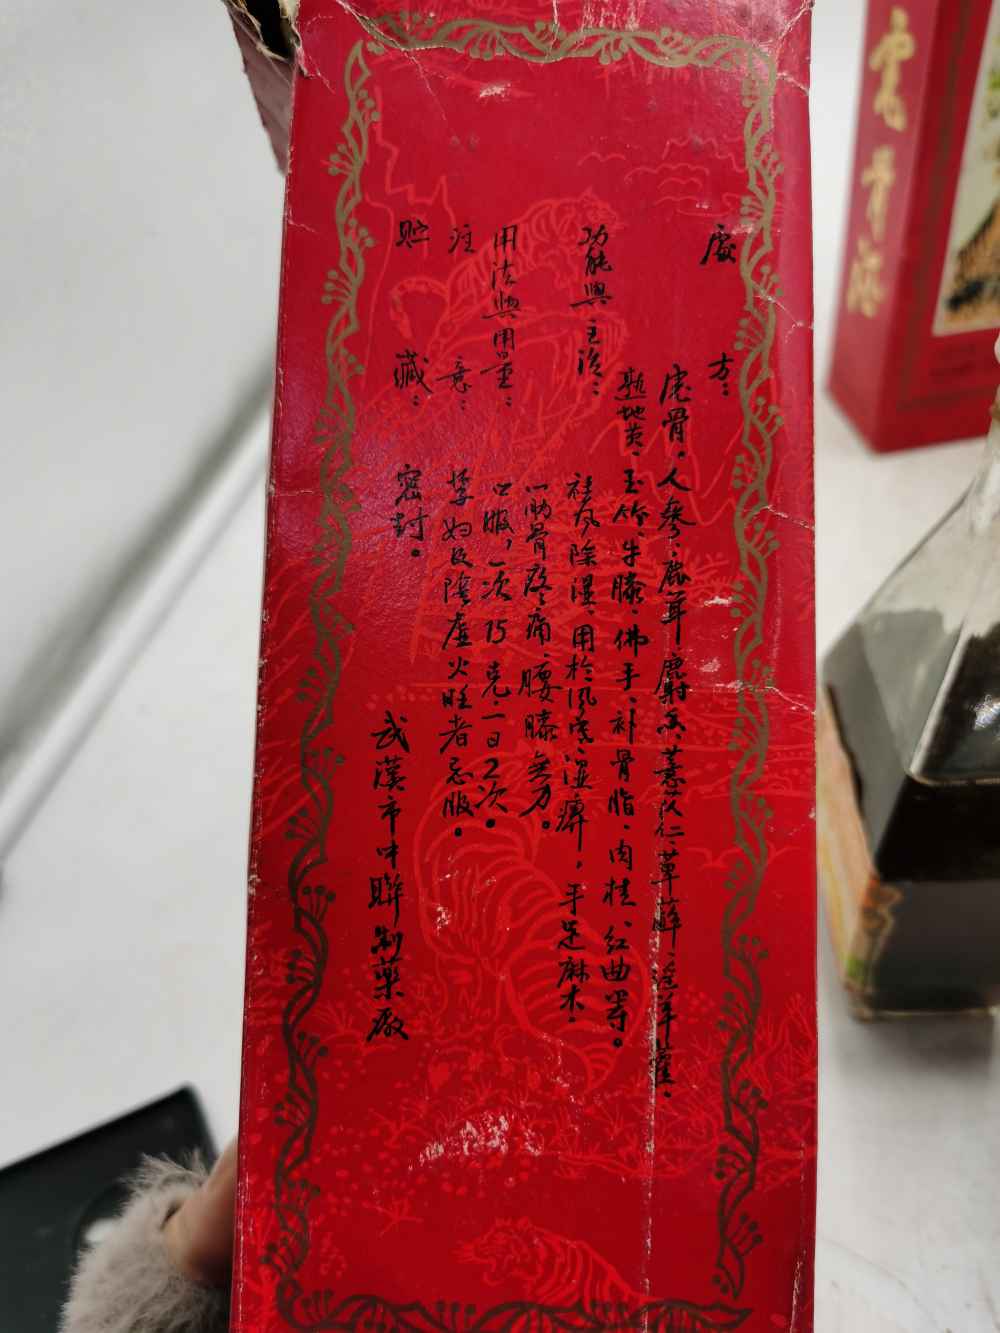 處方：
虎骨、人參、鹿茸、麝香、薏苡仁、萆薢、淫羊藿、
熟地黄、玉竹、牛膝、佛手、补骨脂、肉桂、红曲等。
功能與主治：
祛风除湿、用於风寒湿痹，手足麻木、
筋骨疼痛、腰膝無力。
用法與用量：口服，一次15克、一日2次。
注意：孕妇及陰虚火旺者忌服。
贮藏：密封。
武漢市中聯制藥厰
虎骨酒